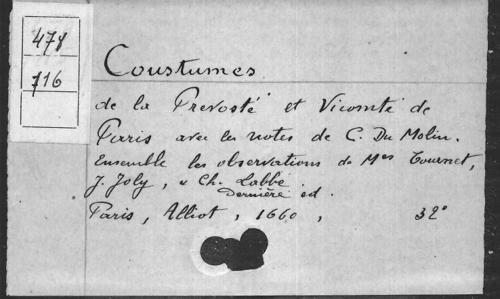 478
716
Coustumes
de la Prevosté et Vicomté de
Paris avec les notes de C. Du Molin.
Ensemble les observations de Mes Tournet,
J. Joly, & Ch. Labbé.
Dernière ed.
Paris, Alliot, 1660, 32°